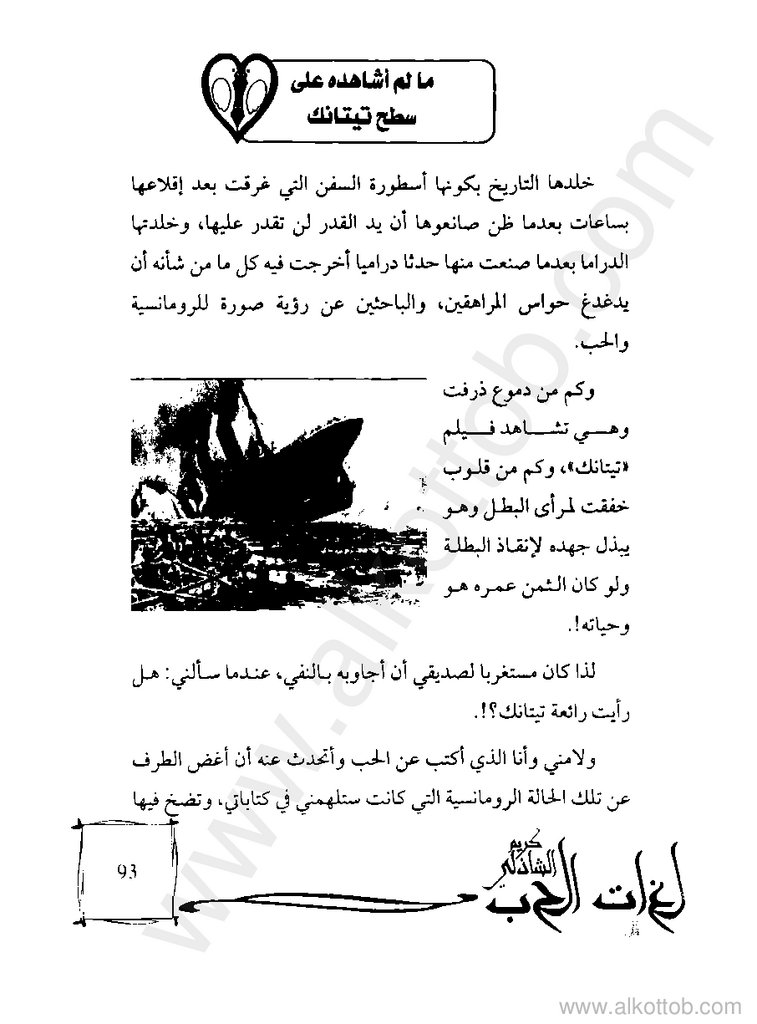 ما لم أشاهده على
سطح تيتانك
خلدها التاريخ بكونها أسطورة السفن التي غرقت بعد إقلاعها
بساعات بعدما ظن صانعوها أن يد القدر لن تقدر عليها، وخلدتها
الدراما بعدما صنعت منها حدثا دراميا أخرجت فيه كل ما من شأنه أن
يدغدغ حواس المراهقين، والباحثين عن رؤية صورة للرومانسية
والحب.
وكم من دموع ذرفت
وهـــي تشـــاهد فـــيلم
«تيتانك»، وكم من قلوب
خفقت لمرأى البطل وهو
يبذل جهده لإنقاذ البطلة
ولو كان الثمن عمره هو
وحياته!.
لذا كان مستغربا لصديقي أن أجاوبه بالنفي، عندما سألني: هل
رأيت رائعة تيتانك؟!.
ولامني وأنا الذي أكتب عن الحب وأتحدث عنه أن أغض الطرف
عن تلك الحالة الرومانسية التي كانت ستلهمني في كتاباتي، وتضخ فيها
93
كريم
الشاذلي
لغات الحب
www.alkottob.com
www.alkottob.com